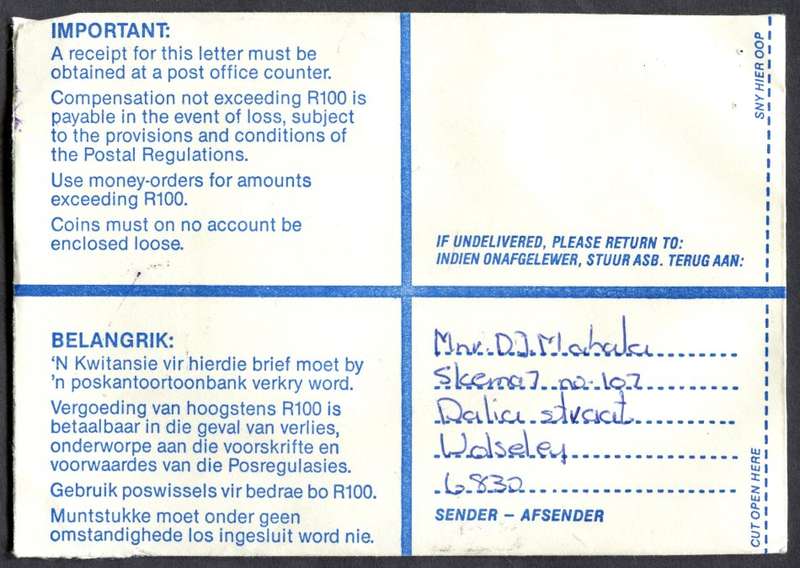 IMPORTANT:
A receipt for this letter must be
obtained at a post office counter.
Compensation not exceeding R100 is
payable in the event of loss, subject
to the provisions and conditions of
the Postal Regulations.
Use money-orders for amounts
exceeding R100.
Coins must on no account be
enclosed loose.
IF UNDELIVERED, PLEASE RETURN TO:
INDIEN ONAFGELEWER, STUUR ASB. TERUG AAN:
SNY HIER OOP
BELANGRIK:
'N Kwitansie vir hierdie brief moet by
'n poskantoortoonbank verkry word.
Vergoeding van hoogstens R100 is
betaalbaar in die geval van verlies,
onderworpe aan die voorskrifte en
voorwaardes van die Posregulasies.
Gebruik poswissels vir bedrae bo R100.
Muntstukke moet onder geen
omstandighede los ingesluit word nie.
Mnr. D.J.
Skema 7 no. 107
Dalia straat
Wolseley
6830
SENDER – AFSENDER
CUT OPEN HERE